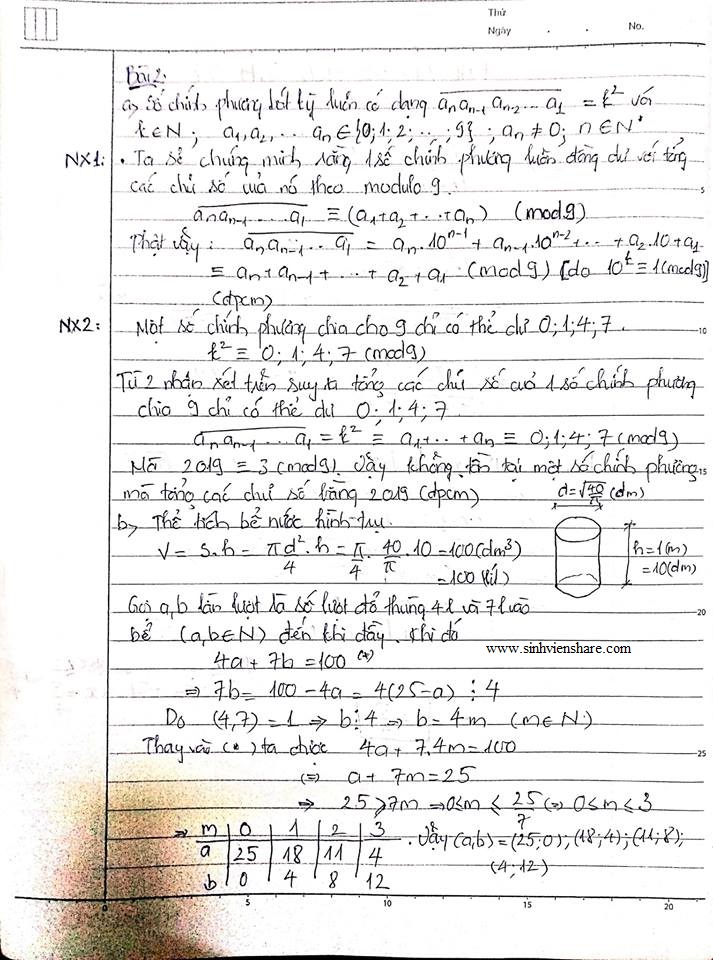 Thứ
Ngày . . No.
Bài 2:
a, Số chính phương bất kỳ luôn có dạng anan-1 an-2 ... a1 = k² với
k∈N ; a1,a2, ... an∈{0;1;2;...;9} ; an ≠ 0; n∈N*
NX1: . Ta sẽ chứng minh rằng 1 số chính phương luôn đồng dư với tổng
các chữ số của nó theo modulo 9.
anan-1 .... a1 ≡ (a1+a2+...+an) (mod9)
Thật vậy : anan-1 ... a1 = an.10^(n-1) + an-1.10^(n-2) + ... + a2.10+a1
≡ an+an-1+ ... + a2+a1 (mod 9) [do 10^k ≡ 1 (mod9)]
(đpcm)
NX2: Một số chính phương chia cho 9 chỉ có thể dư 0;1;4;7.
k² ≡ 0; 1; 4; 7 (mod9)
Từ 2 nhận xét trên suy ra tổng các chữ số của 1 số chính phương
chia 9 chỉ có thể dư 0; 1; 4; 7
anan-1 ... a1 = k² ≡ a1+...+an ≡ 0;1;4;7 (mod9)
Mà 2019 ≡ 3 (mod9). Vậy không tồn tại một số chính phương
mà tổng các chữ số bằng 2019 (đpcm)
d=√(40/π) (dm)
b, Thể tích bể nước hình trụ.
V = S.h = πd²/4 . h = π/4 . 40/π . 10 = 100 (dm³)
= 100 (lít)
h=1(m)
=10(dm)
Gọi a,b lần lượt là số lượt đổ thùng 4l và 7l vào
bể (a,b∈N) đến khi đầy. Khi đó
www.sinhvienshare.com
4a + 7b = 100 (*)
⇒ 7b = 100 - 4a = 4(25-a) ⋮ 4
Do (4,7) = 1 ⇒ b⋮4 ⇒ b = 4m (m∈N)
Thay vào (*) ta được 4a + 7.4m = 100
⇔ a + 7m = 25
⇒ 25 ≥ 7m ⇒ 0≤m ≤ 25/7 ⇔ 0≤m≤3
⇒ m | 0 | 1 | 2 | 3
a | 25 | 18 | 11 | 4
b | 0 | 4 | 8 | 12
. Vậy (a,b) = (25;0); (18;4); (11;8);
(4;12)
5
10
15
20
25
0 5 10 15 20